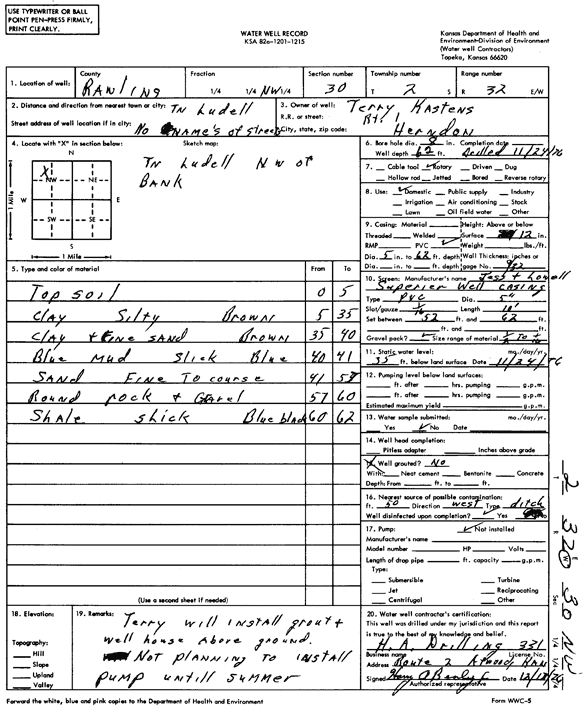 USE TYPEWRITER OR BALL
POINT PEN-PRESS FIRMLY,
PRINT CLEARLY.
WATER WELL RECORD
KSA 82a-1201-1215
Kansas Department of Health and
Environment-Division of Environment
(Water well Contractors)
Topeka, Kansas 66620
1. Location of well: County RAWLINS Fraction 1/4 1/4 NW 1/4 Section number 30 Township number T 2 S Range number R 32 E/W
2. Distance and direction from nearest town or city: IN Ludell
Street address of well location if in city: No NAME'S of street
3. Owner of well: Terry KASTENS
R.R. or street: Rt. 1
City, state, zip code: Herndon
4. Locate with "X" in section below: Sketch map:
N
X NW NE
W E
SW SE
S
1 Mile
1 Mile
IN Ludell NW of
BANK
5. Type and color of material From To
Top soil 0 5
CLAY Silty Brown 5 35
CLAY + FINE SAND Brown 35 40
Blue Mud Slick Blue 40 41
SAND FINE To course 41 57
Round rock + GRAVEL 57 60
ShAle slick Blue black 60 62
(Use a second sheet if needed)
6. Bore hole dia. in. Completion date
Well depth 62 ft. Drilled 11/24/76
7. Cable tool ✓ Rotary Driven Dug
Hollow rod Jetted Bored Reverse rotary
8. Use: ✓ Domestic Public supply Industry
Irrigation Air conditioning Stock
Lawn Oil field water Other
9. Casing: Material Height: Above or below
Threaded Welded Surface 12 in.
RMP PVC ✓ Weight lbs./ft.
Dia. 5 in. to 62 ft. depth Wall Thickness: inches or
Dia. in. to ft. depth gage No.
10. Screen: Manufacturer's name Jess + Lowell
Superior Well CASING
Type PVC Dia. 5"
Slot/gauze Length 10'
Set between 52 ft. and 62 ft.
ft. and ft.
Gravel pack? ✓ Size range of material
11. Static water level: mo./day/yr.
35 ft. below land surface Date 11/24/76
12. Pumping level below land surfaces:
ft. after hrs. pumping g.p.m.
ft. after hrs. pumping g.p.m.
Estimated maximum yield g.p.m.
13. Water sample submitted: mo./day/yr.
Yes ✓ No Date
14. Well head completion:
Pitless adapter Inches above grade
X Well grouted? No
With: Neat cement Bentonite Concrete
Depth: From ft. to ft.
16. Nearest source of possible contamination:
ft. 50 Direction west Type ditch
Well disinfected upon completion? ✓ Yes No
17. Pump: ✓ Not installed
Manufacturer's name
Model number HP Volts
Length of drop pipe ft. capacity g.p.m.
Type:
Submersible Turbine
Jet Reciprocating
Centrifugal Other
18. Elevation:
Topography:
Hill
Slope
Upland
Valley
19. Remarks: Terry will install grout +
well house above ground.
Not planning to install
pump untill summer
20. Water well contractor's certification:
This well was drilled under my jurisdiction and this report
is true to the best of my knowledge and belief.
H. A. Drilling 331
Business name License No.
Address Route 2 Atwood, KAN
Signed Date
Authorized representative
T 2 R 32 W Sec 30 1/4 1/4 NW 1/4
Forward the white, blue and pink copies to the Department of Health and Environment Form WWC-5